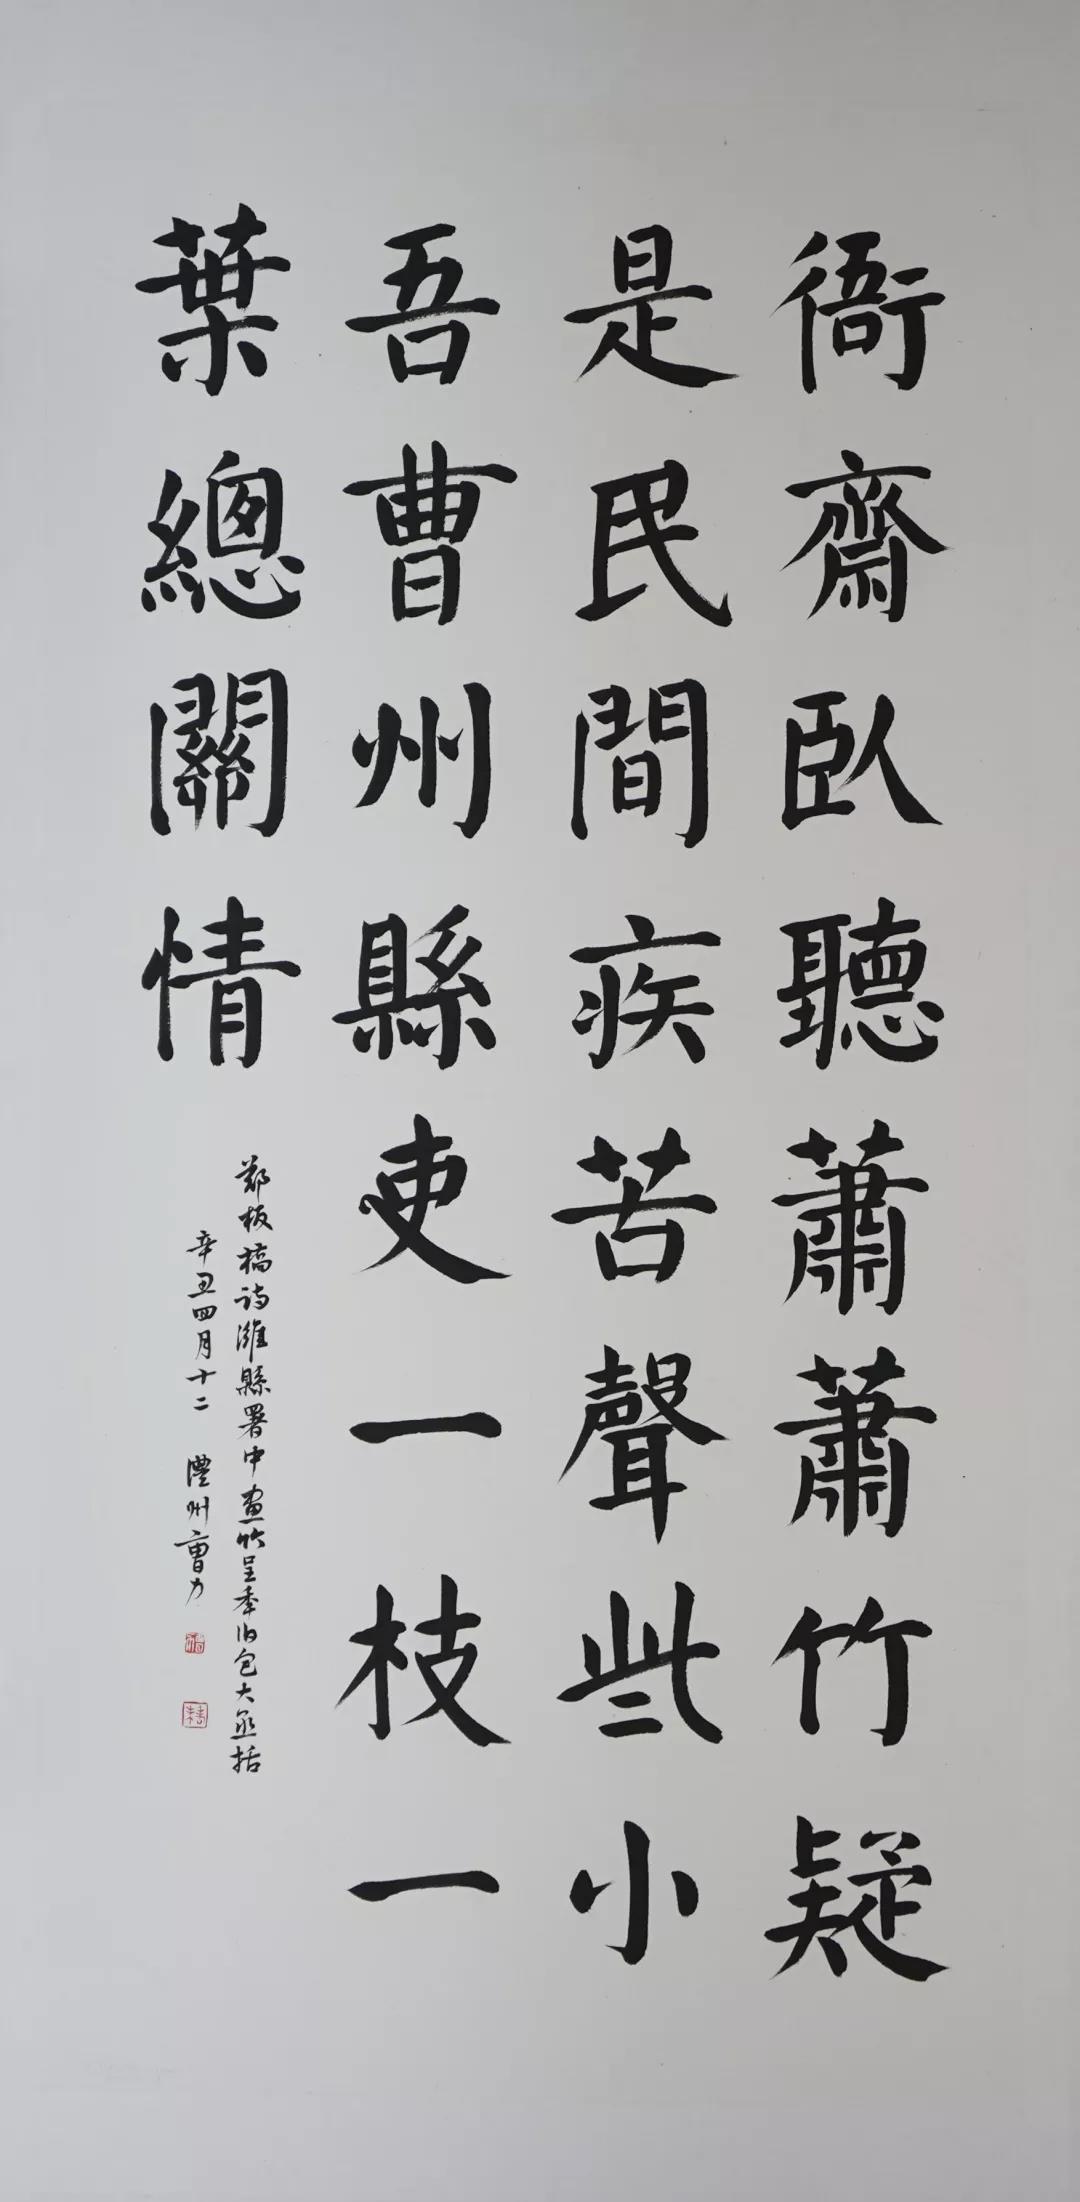 衙齋臥聽蕭蕭竹疑
是民間疾苦聲些小
吾曹州縣吏一枝一
葉總關情
鄭板橋詩濰縣署中畫竹呈年伯包大丞括
辛丑四月十二 澧州曹力